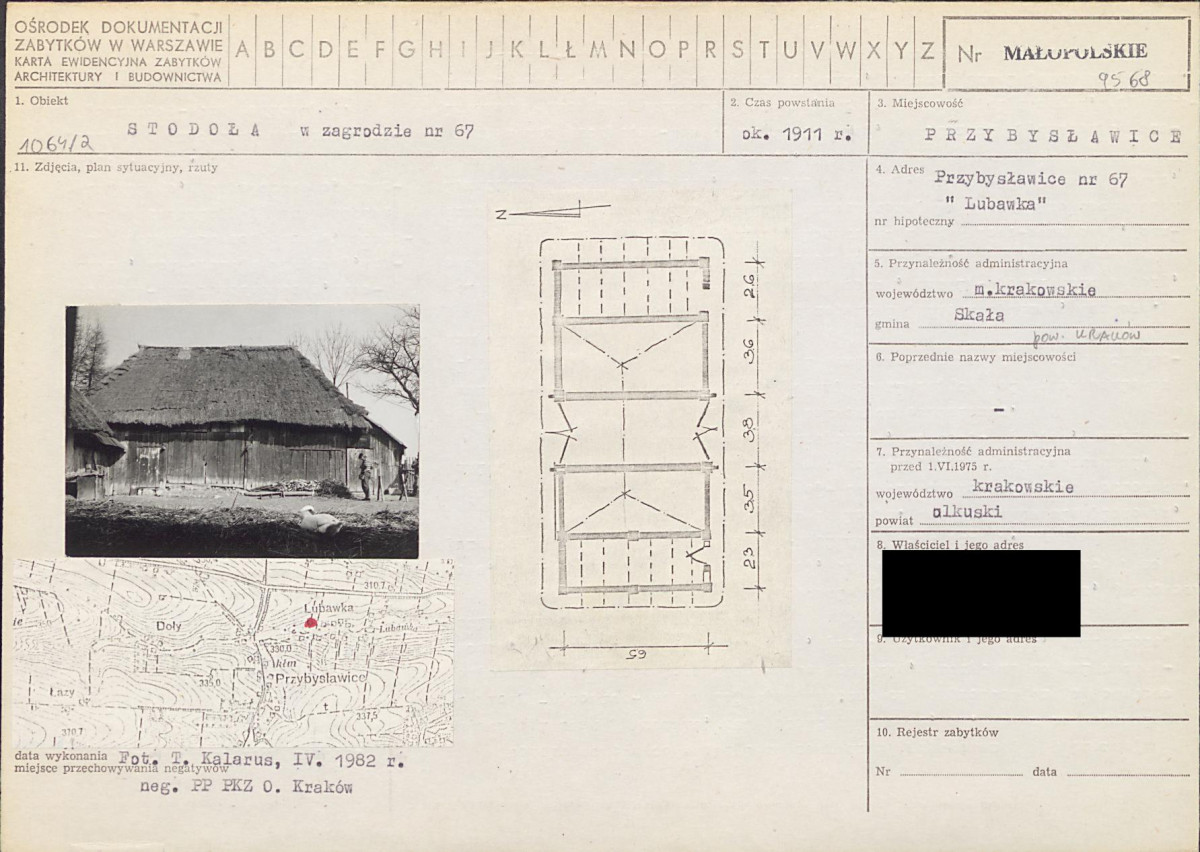 OŚRODEK DOKUMENTACJI
ZABYTKÓW W WARSZAWIE
KARTA EWIDENCYJNA ZABYTKÓW
ARCHITEKTURY I BUDOWNICTWA
A B C D E F G H I J K L Ł M N O P R S T U V W X Y Z
Nr MAŁOPOLSKIE
9568
1. Obiekt
STODOŁA w zagrodzie nr 67
1064/2
2. Czas powstania
ok. 1911 r.
3. Miejscowość
PRZYBYSŁAWICE
11. Zdjęcia, plan sytuacyjny, rzuty
4. Adres Przybysławice nr 67
" Lubawka"
nr hipoteczny
5. Przynależność administracyjna
województwo m.krakowskie
gmina Skała
pow. KRAKÓW
6. Poprzednie nazwy miejscowości
-
7. Przynależność administracyjna
przed 1.VI.1975 r.
województwo krakowskie
powiat olkuski
8. Właściciel i jego adres
9. Użytkownik i jego adres
10. Rejestr zabytków
Nr data
N
26
36
38
35
23
65
310,7
Lubawka
Doły
Lubawka
330,0
klm
335,0
Przybysławice
Łazy
337,5
370,7
data wykonania Fot. T. Kalarus, IV. 1982 r.
miejsce przechowywania negatywów
neg. PP PKZ O. Kraków